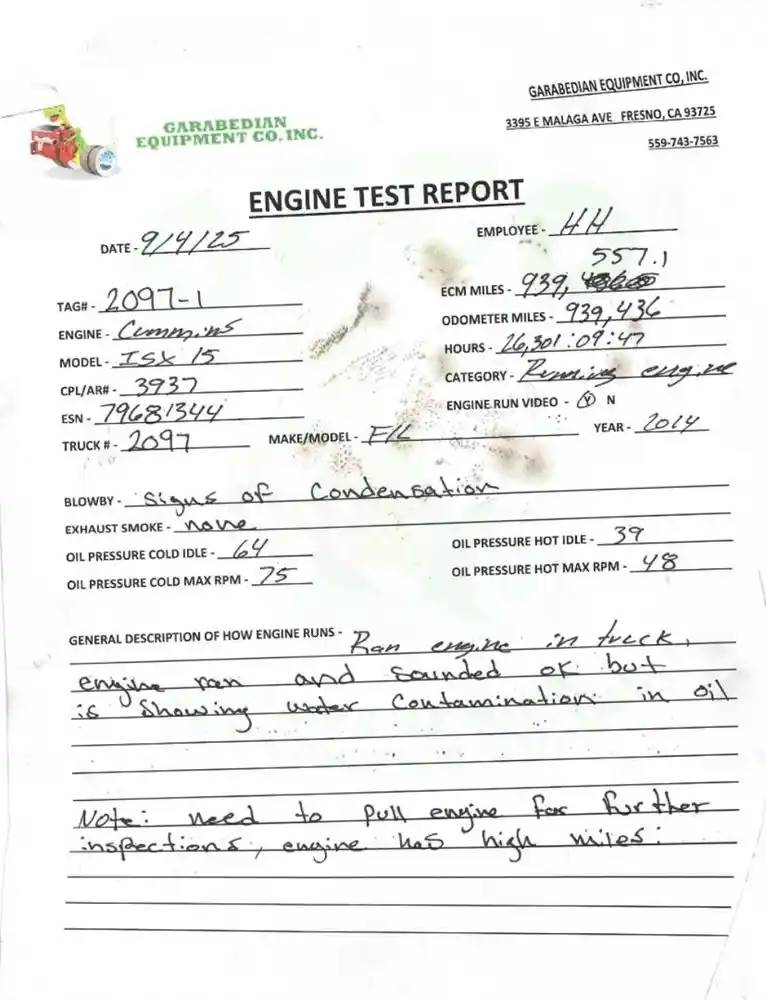 GARABEDIAN EQUIPMENT CO, INC.
3395 E MALAGA AVE FRESNO, CA 93725
559-743-7563
GARABEDIAN
EQUIPMENT CO. INC.
ENGINE TEST REPORT
DATE - 9/4/25
EMPLOYEE - HH
557.1
TAG# - 2097-1
ECM MILES - 939,
ENGINE - Cummins
ODOMETER MILES - 939,436
MODEL - ISX 15
HOURS - 26,301:09:47
CPL/AR# - 3937
CATEGORY - Running engine
ESN - 79681344
ENGINE RUN VIDEO - Y N
TRUCK # - 2097 MAKE/MODEL - F/L YEAR - 2014
BLOWBY - Signs of Condensation
EXHAUST SMOKE - none
OIL PRESSURE COLD IDLE - 64 OIL PRESSURE HOT IDLE - 39
OIL PRESSURE COLD MAX RPM - 75 OIL PRESSURE HOT MAX RPM - 48
GENERAL DESCRIPTION OF HOW ENGINE RUNS - Ran engine in truck,
engine ran and sounded ok but
is showing water Contamination in oil
Note: need to pull engine for further
inspections, engine has high miles.